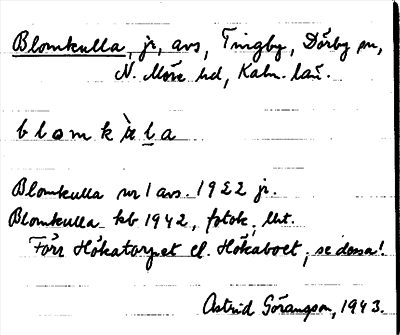 Blomkulla, jr, avs, Tingby, Dörby sn,
N. Möre hd, Kalm. län.
blomkùla
Blomkulla nr 1 avs. 1922 jr.
Blomkulla kb 1942, fotok, lht.
Förr Hökatorpet el. Hökaboet; se dessa!
Astrid Göransson, 1943.